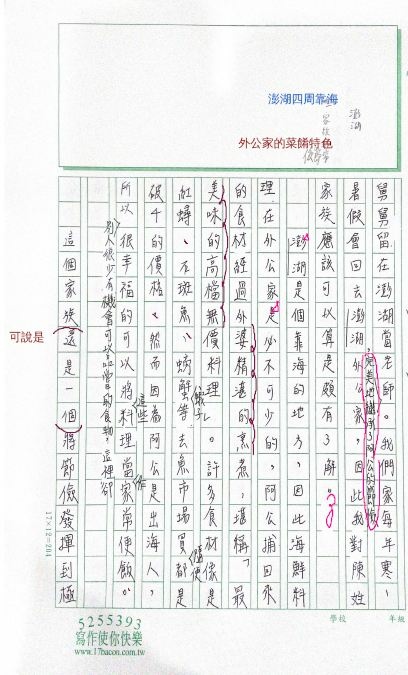 澎湖四周靠海
澎湖
外公家的菜餚特色
舅舅留在澎湖當老師。我們家每年寒、
暑假會回去澎湖外公家,因此我對陳姓
完美地繼承了阿公的節儉
家族應該可以算是頗有了解。
澎湖是個靠海的地方,因此海鮮料
理在外公家是必不可少的,阿公捕回來
的食材經過外婆精湛的烹煮,堪稱最
美味的高檔無價料理。許多食材像是
紅蟳、石斑魚、螃蟹等去魚市場買都是
隨便
破千的價格,然而因為阿公是出海人,
所以很幸福的可以將料理當家常便飯。
這些
別人很少有機會可以品嘗的食物,這裡卻
這個家族還是一個將節儉發揮到極
可說是
17×12=204
學校
年級
5255393
寫作使你快樂
www.17bacon.com.tw